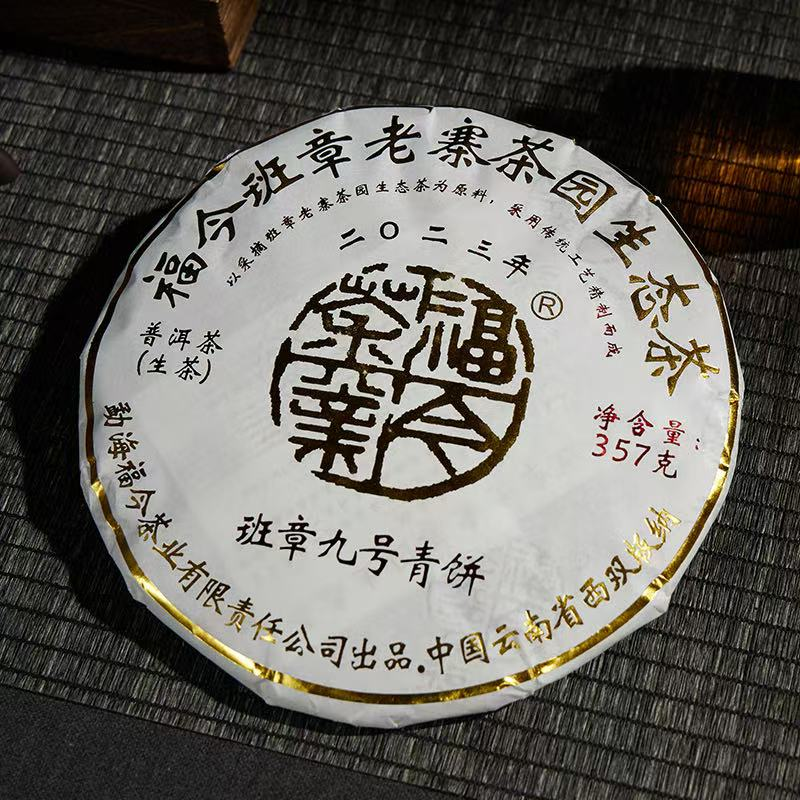 福今班章老寨茶园生态茶
以采摘班章老寨茶园生态茶为原料，采用传统工艺精制而成
二〇二三年
®
普洱茶
(生茶)
福今茶业
净含量：
357克
班章九号青饼
勐海福今茶业有限责任公司出品.中国云南省西双版纳